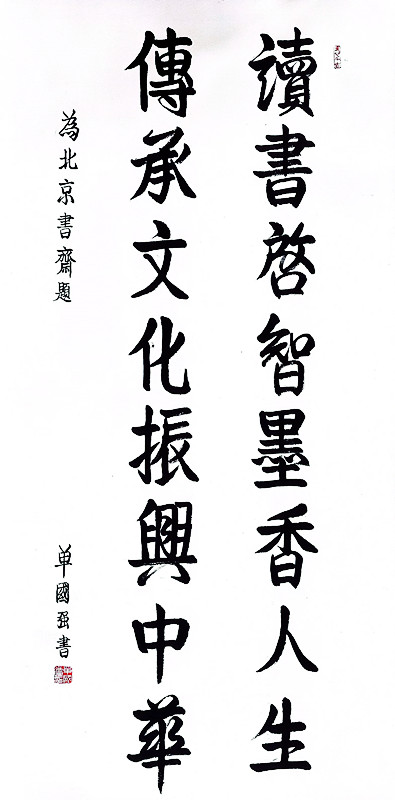 讀書啓智墨香人生
傳承文化振興中華
為北京書齋題
单國强書